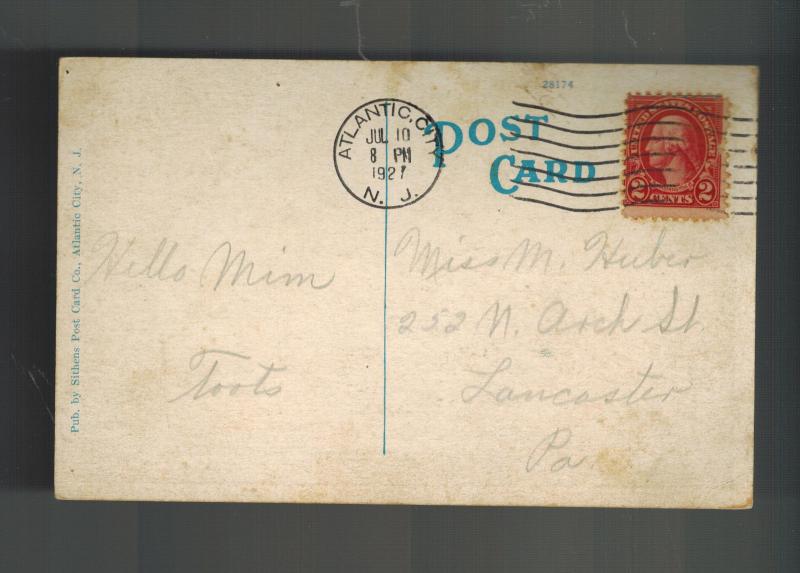 28174
POST
CARD
ATLANTIC CITY
JUL 10
8 PM
1927
N. J.
2 CENTS 2
Pub. by Sithens Post Card Co., Atlantic City, N. J.
Hello Mim
Toots
Miss M. Huber
252 N. Arch St
Lancaster
Pa.